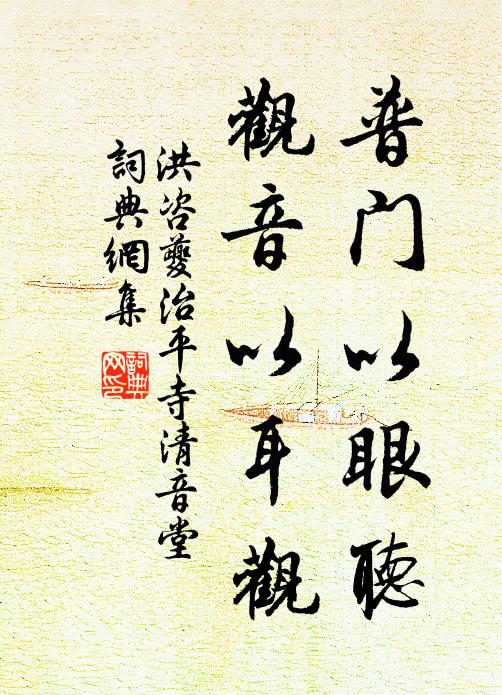 普门以眼聽
觀音以耳觀
洪咨夔治平寺清音堂
詞典網集
詞典网印